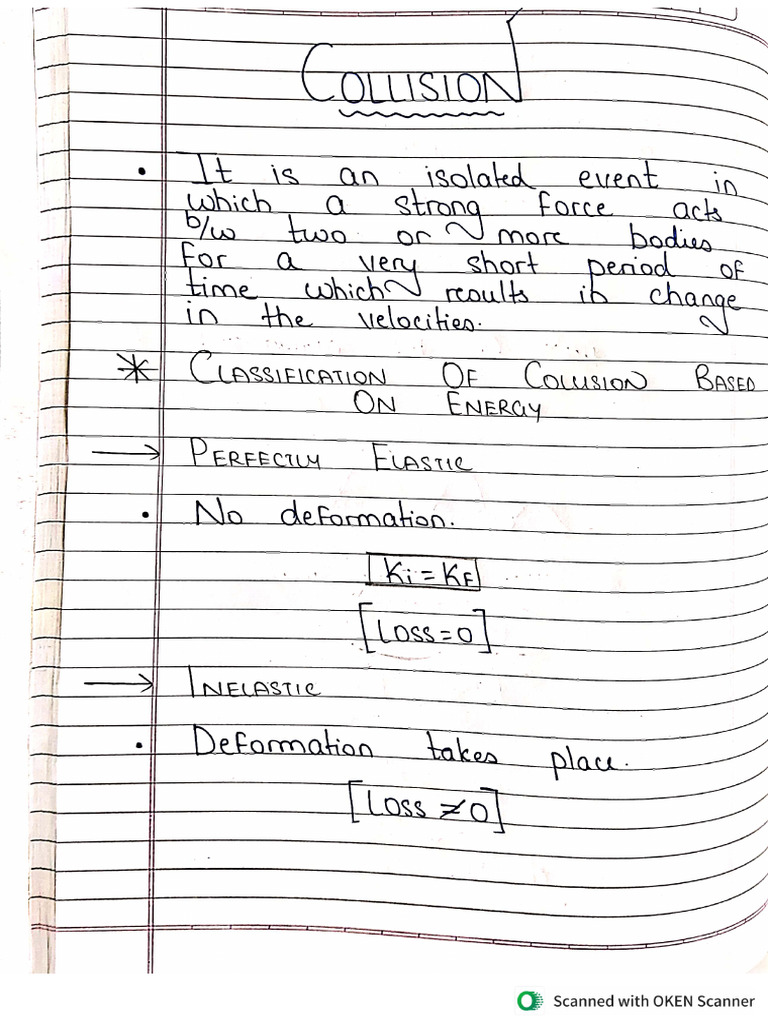 COLLISION
• It is an isolated event in
which a strong force acts
b/w two or more bodies
for a very short period of
time which results in change
in the velocities.
* CLASSIFICATION OF COLLISION BASED
ON ENERGY
→ PERFECTLY ELASTIC
• No deformation.
Ki = KF
[Loss = 0]
→ INELASTIC
• Deformation takes place.
[Loss ≠ 0]
Scanned with OKEN Scanner